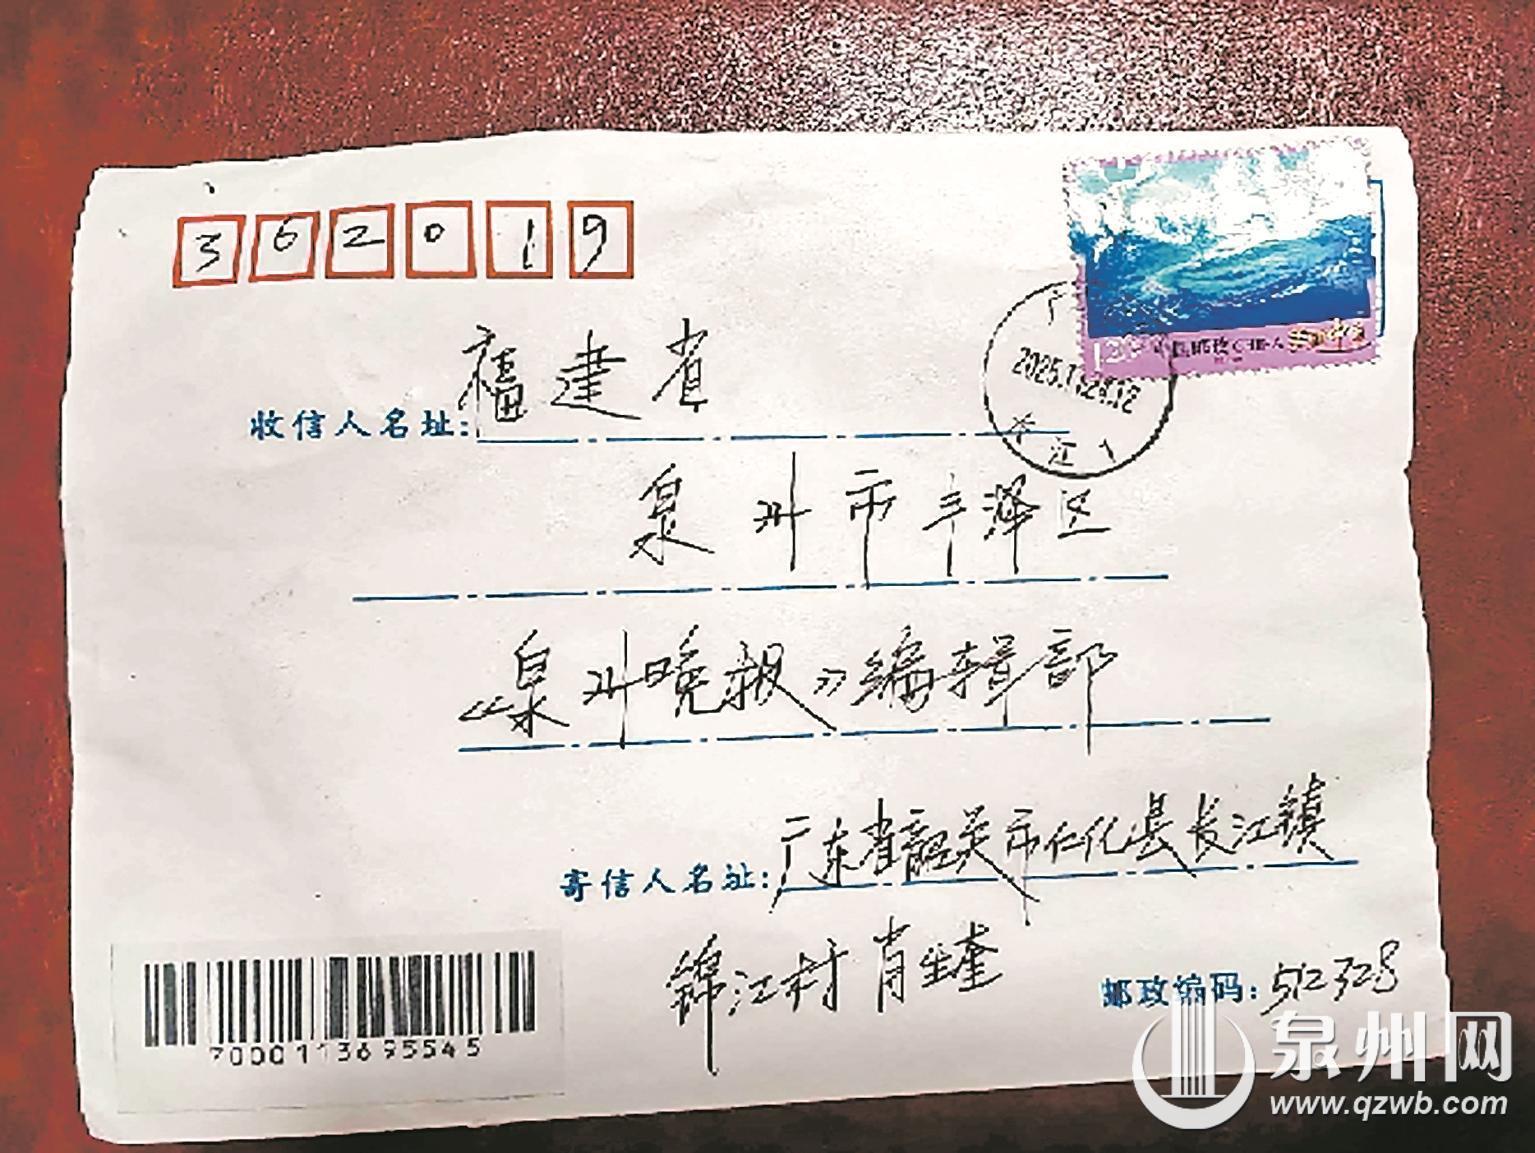 362019
收信人名址:福建省
泉州市丰泽区
《泉州晚报》编辑部
寄信人名址:广东省韶关市仁化县长江镇
锦江村 肖生奎
邮政编码:512328
7000113695545
中国邮政 CHINA
江
泉州网
www.qzwb.com